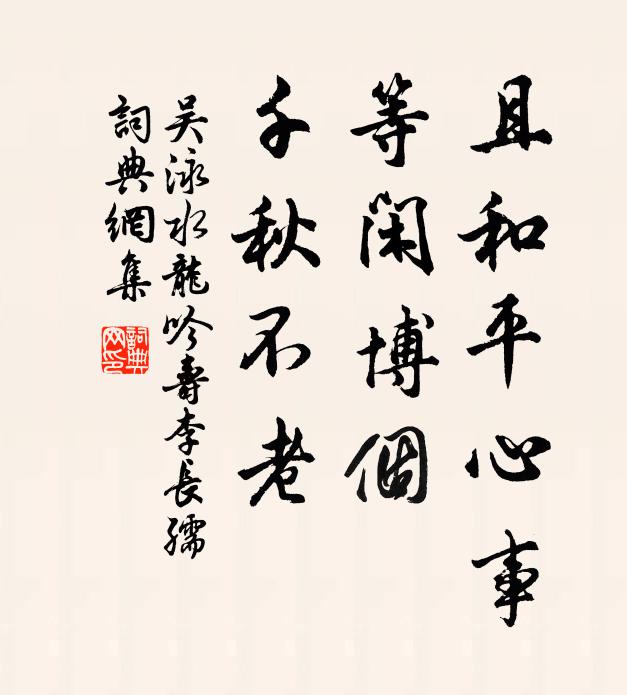 且和平心事
等閑博個
千秋不老
吴泳水龍吟壽李長孺
詞典網集
詞典網印